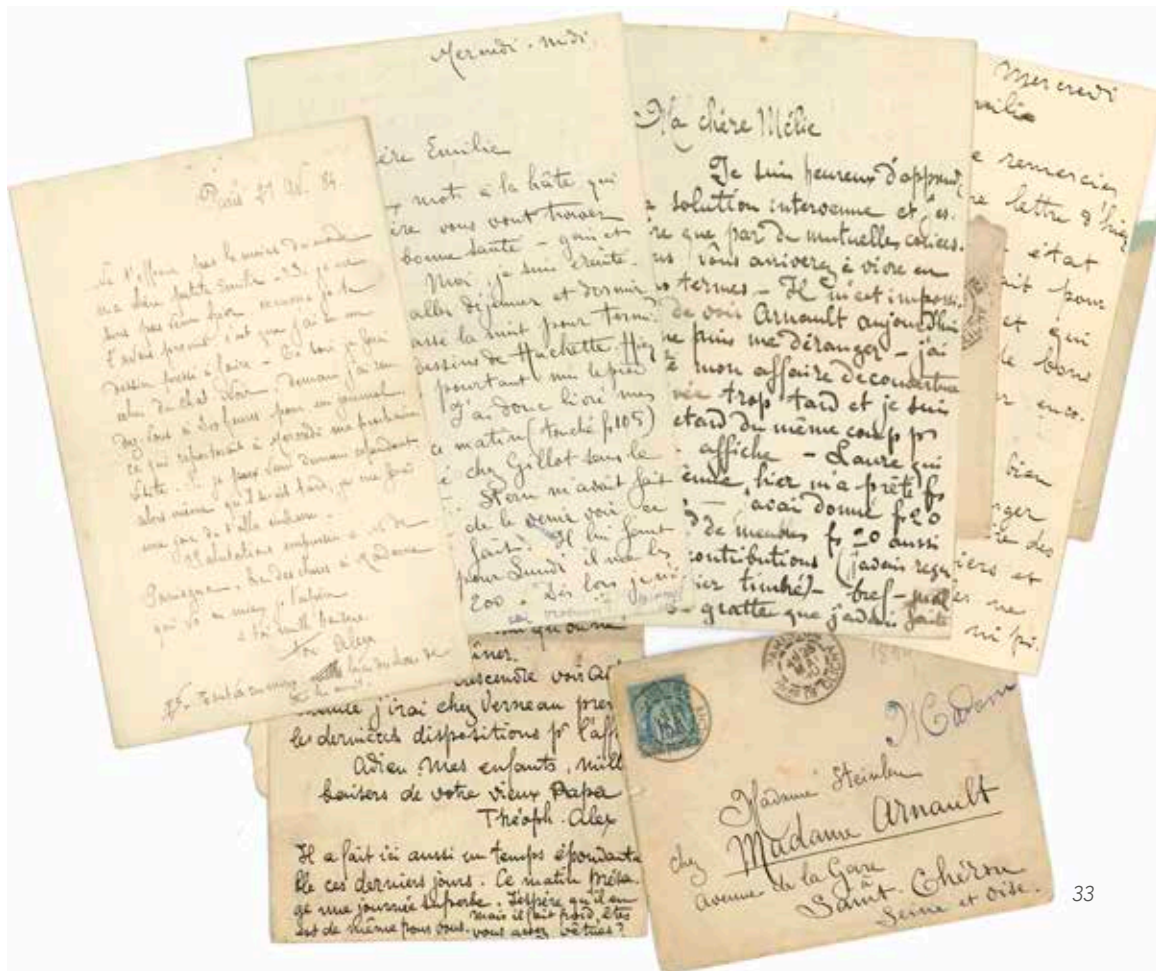 Paris 27 av. 84.
Ne t'effraie pas le moins du monde
ma chère petite Emilie - Si je ne
suis pas venu hier comme je te
l'avais promis c'est que j'ai eu un
dessin pressé à faire - Ce soir je fais
celui du Chat Noir, demain j'ai ren
dez-vous à 3 heures pour un journal
ce qui reporterait à Mercredi ma prochaine
visite. - Si je peux venir demain cependant
alors même qu'il serait tard, je me ferai
une joie de t'aller embrasser.
Salutations
bien des choses à Madame
qui va mieux je l'espère
à toi mille baisers
ton Alex
PS.
Mercredi. midi.
ère Emilie
x mots à la hâte qui
ère vous vont trouver
bonne santé - gais et
Moi, je suis éreinté.
aller déjeuner et dormir
assé la nuit pour termi
essins de Huchette. Hier
pourtant
J'ai donc livré mes
ce matin (touché f. 105)
é chez Gillot sans le
Stern m'avait fait
de le venir voir - ce
fait. Il lui faut
pour Lundi il me les
200. - Dès lors je
Ma chère Mélie
Je suis heureux d'apprend
a solution intervenue et j'es
re que par de mutuelles conces.
ns vous arriverez à vivre en
s termes - Il m'est impossi.
de voir Arnault aujourd'hui
ne puis me déranger - j'ai
é mon affaire de couverture
vée trop tard et je suis
etard du même coup pr
affiche - Laure qui
enue, hier m'a prêté fs
- avai donné f. 20
d de meudon fs 20 aussi
contributions (j'avais reçu
ier timbré) - bref - mal
- gratter que j'avais faite
Mercredi
milie
e remercier
re lettre d'hier
état
ait pour
et qui
de bons
r enco.
bien
rger
ie des
iers et
es ne
ni pi.
îner.
escendre voir
j'irai chez Verneau pren
les dernières dispositions pr l'aff
Adieu mes enfants, mill
baisers de votre vieux Papa
Théoph-Alex
Il a fait ici aussi un temps épouvanta
ble ces derniers jours. Ce matin présa.
ge une journée superbe. J'espère qu'il en
est de même pour vous. mais il fait froid, êtes
vous assez vêtues?
Madam
Madame Steinlen
chez Madame Arnault
avenue de la Gare
à
Saint-Chéron
Seine et Oise.
33